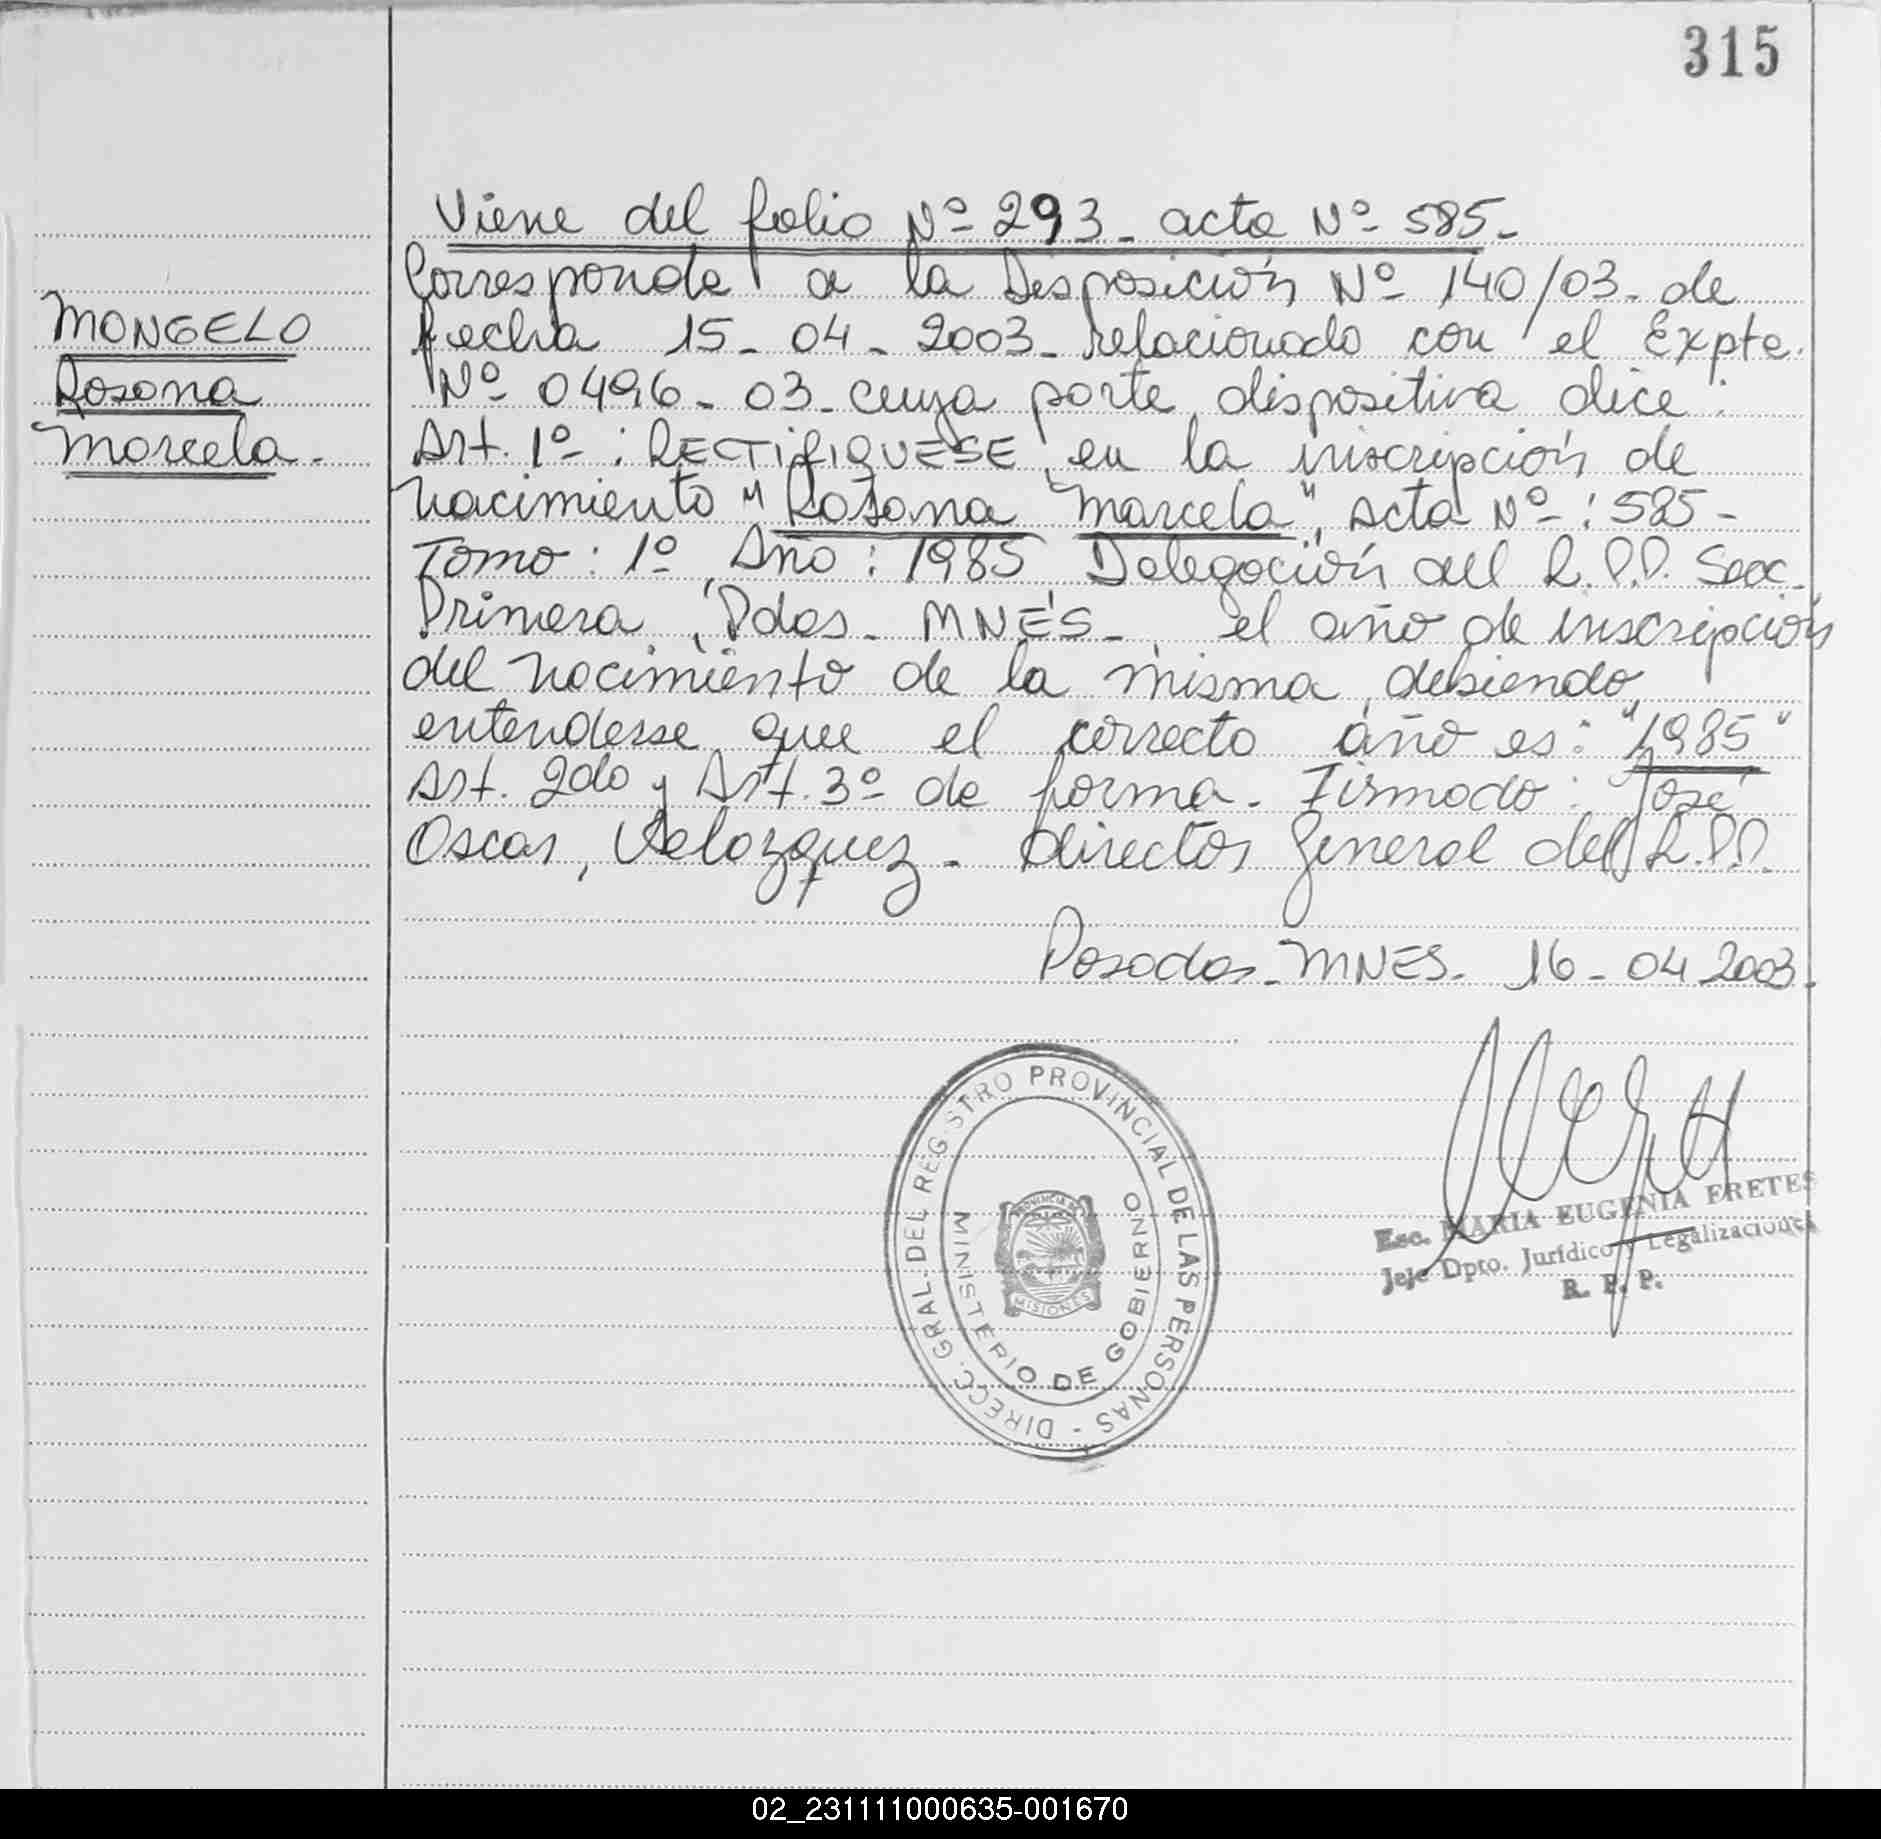 315
Viene del folio Nº 293 - acta Nº 585 -
MONGELO
Rosana
Marcela -
Corresponde a la Disposición Nº 140/03 - de
fecha 15 - 04 - 2003 - relacionado con el Expte.
Nº 0496 - 03 - cuya parte dispositiva dice :
Art. 1º : RECTIFIQUESE en la inscripción de
nacimiento " Rosana Marcela ", acta Nº : 585 -
Tomo : 1º, Año : 1985 Delegación del R.P.P. Secc.
Primera, Pdas - MNES - , el año de inscripción
del nacimiento de la misma, debiendo
entenderse que el correcto año es : "1985"
Art. 2do y Art. 3º de forma - Firmado : José
Oscar, Velazquez - director General del R.P.P.
Posadas - MNES - 16 - 04 2003 -
DIRECC. GRAL. DEL REGISTRO PROVINCIAL DE LAS PERSONAS -
MINISTERIO DE GOBIERNO
PROVINCIA DE
MISIONES
Esc. MARIA EUGENIA FRETES
Jefe Dpto. Jurídico y Legalizaciones
R. P. P.
02_231111000635-001670